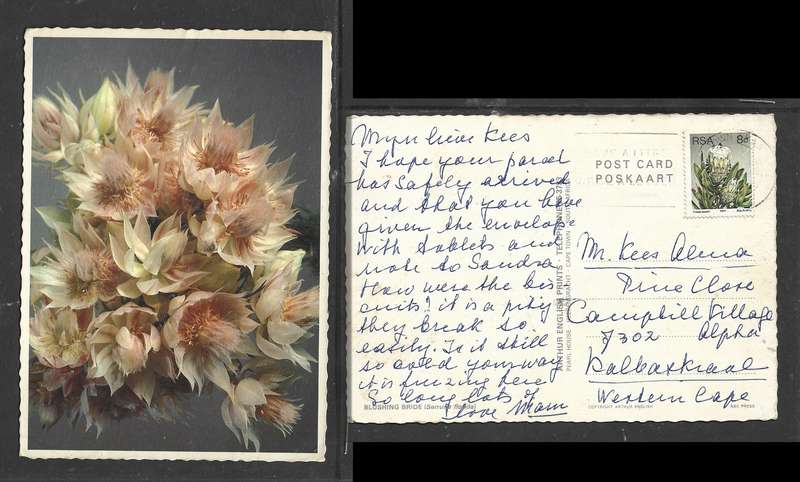 Mijn lieve Kees
I hope your parcel
has safely arrived
and that you have
given the envelope
with tablets and
note to Sandra
How were the bis
cuits? it is a pity
they break so
easily. Is it still
so cold your way
it is freezing here
So long lots of
love Mam
BLUSHING BRIDE (Serruria florida)
ARTHUR ENGLISH PRINTS · TELEPHONE
PEARL HOUSE CAPE TOWN SOUTH AFRICA
POST CARD
POSKAART
RSA 8c
Mr. Kees Alma
Pine Close
Camphill Village
7302 Alpha
Kalbaskraal
Western Cape
COPYRIGHT ARTHUR ENGLISH